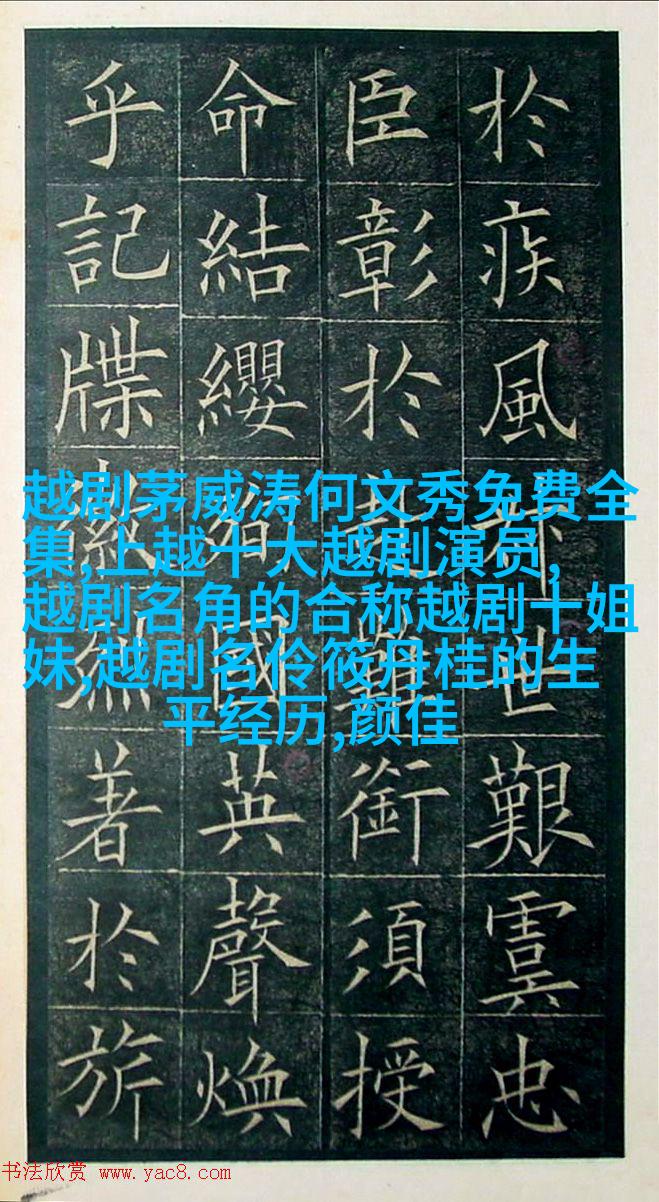 於疾風叔世艱虞忠
臣彰於赴難銜須授
命結纓殉國英聲煥
乎記牒徽烈著於旂
越剧茅威涛何文秀免费全
集,上越十大越剧演员,
越剧名角的合称越剧十姐
妹,越剧名伶筱丹桂的生
平经历,颜佳
书法欣赏 www.yac8.com